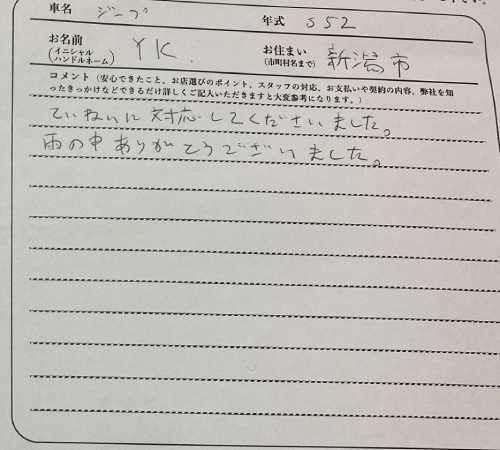 車名 ジープ 年式 S52
お名前 (イニシャル ハンドルネーム) YK. お住まい (市町村名まで) 新潟市
コメント(安心できたこと、お店選びのポイント、スタッフの対応、お支払いや契約の内容、弊社を知
ったきっかけなどできるだけ詳しくご記入いただきますと大変参考になります。)
ていねいに対応してくださいました。
雨の中ありがとうございました。